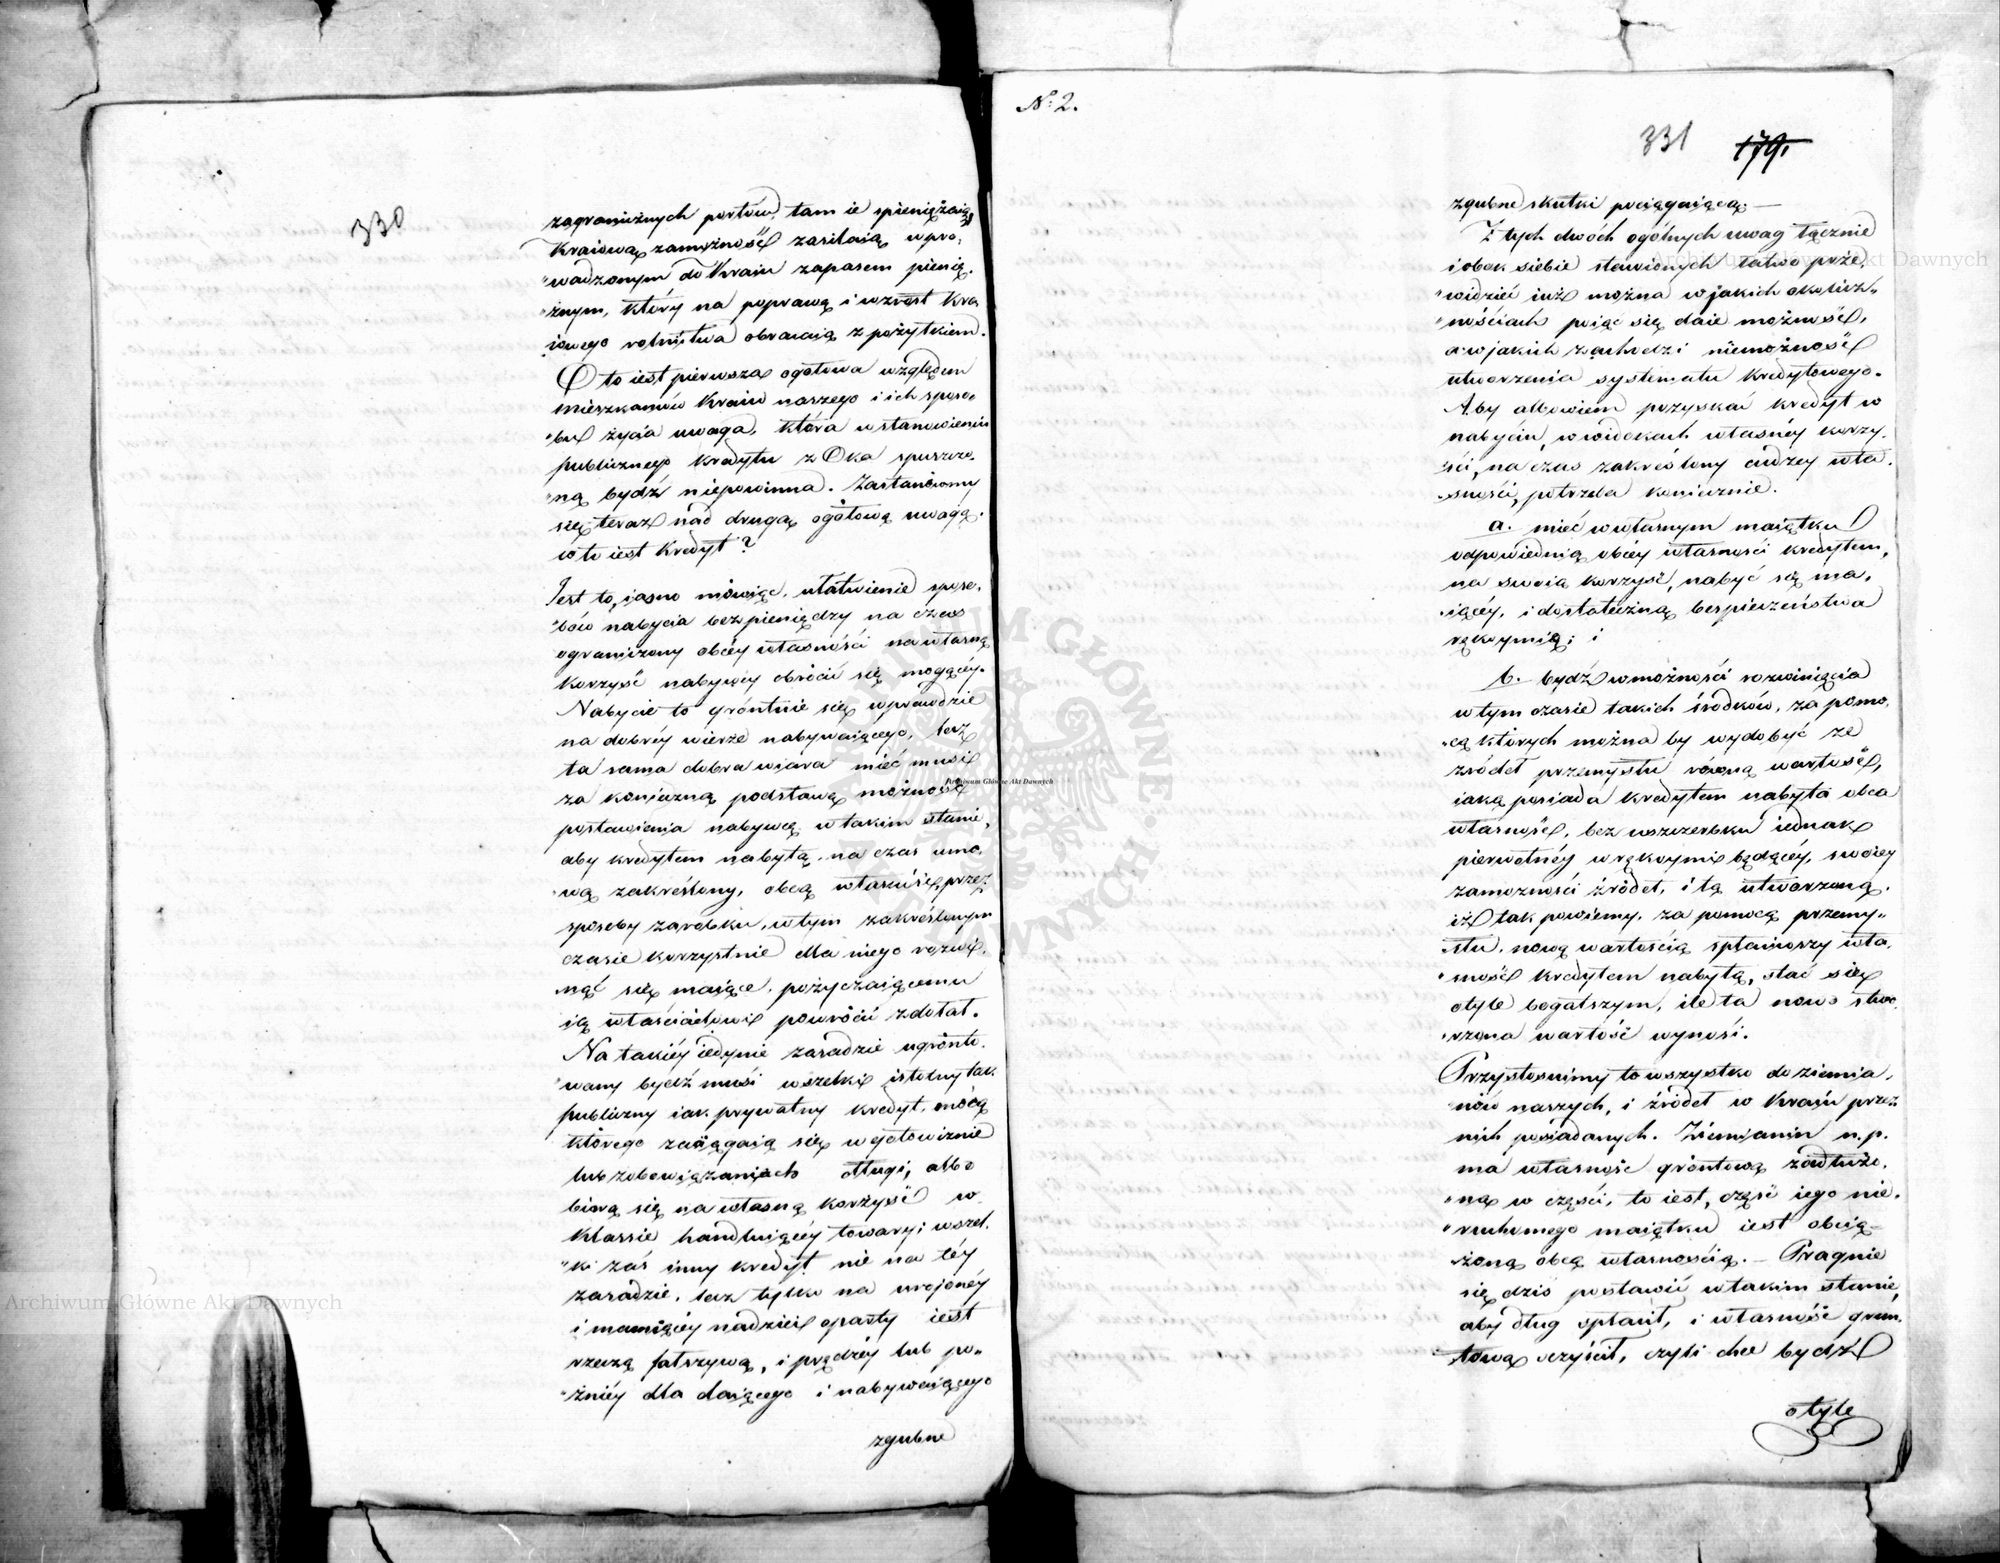 330
zagranicznych portów, tam ie spieniężaią,
Kraiową zamożność zasilaią wpro,
"wadzonym do Kraiu zapasem pienię,
"żnym, który na poprawę i wzrost Kra,
iowego rolnictwa obracaią z pożytkiem.
O to iest pierwsza ogółowa względem
mieszkańców Kraiu naszego i ich sposo,
"bu życia uwaga, która w stanowieniu
publicznego kredytu z Oka spuszczo,
"ną bydź niepowinna. Zastanówmy
się teraz nad drugą ogółową uwagą.
co to iest Kredyt?
Jest to, iasno mówiąc, ułatwienie sposo,
"bów nabycia bez pieniędzy na czas
ograniczony obcéy własności na własną
korzyść nabywcy obrócić się mogącéy.
Nabycie to gróntuie się wprawdzie
na dobréy wierze nabywaiącego, lecz
ta sama dobra wiara mieć musi
za konieczną podstawę możność
postawienia nabywcę w takim stanie,
aby kredytem nabytą, na czas umo,
"wą zakreślony, obcą własność, przez
sposoby zarobku, w tym zakreślonym
czasie korzystnie dla niego rozwi,
"nąć się maiące, pożyczaiącemu
ią właścicielowi powrócić zdołał.
Na takiéy iedynie zasadzie ugrónto,
"wany bydź musi wszelki istotny tak
publiczny iak prywatny kredyt, mocą
którego zaciągaią się w gotowiznie
lub zobowiązaniach długi, albo
biorą się na własną korzyść w
Klassie handluiącéy towary; wszel,
"ki zaś inny kredyt nie na téy
zasadzie, lecz tylko na uroionéy
i mamiącéy nadziei oparty iest
rzeczą fałszywą, i prędzéy lub po„
"źniéy dla daiącego i nabywaiącego
zgubne
N: 2.
331 179.
zgubne skutki pociągaiącą. —
Z tych dwóch ogólnych uwag łącznie
i obok siebie stawionych łatwo prze,
"widzieć iuż można w jakich okolicz„
"nościach poiąc się daie możność,
a w jakich zachodzi niemożność
utworzenia systematu kredytowego.
Aby albowiem pozyskać kredyt w
nabyciu, w widokach własnéy korzy,
"ści, na czas zakreślony cudzey wła,
"sności, potrzeba koniecznie.
a. mieć w własnym maiątku
odpowiednią obcéy własności kredytem,
na swoią korzyść, nabyć się ma,
"iącéy, i dostateczną bespieczeństwa
rękoymią; i
b. bydź w możności rozwinięcia
w tym czasie takich środków, za pomo,
"cą których można by wydobyć ze
źródeł przemysłu równą wartość,
iaką posiada kredytem nabyta obca
własność, bez uszczerbku iednak
pierwotnéy w rękoymi będącéy, swoiey
zamożności źródeł, i tą utworzoną,
iż tak powiemy, za pomocą przemy„
"słu, nową wartością spłaciwszy wła,
"sność kredytem nabytą, stać się
otyle bogatszym, ile ta nowo stwo,
"rzona wartość wynosi.
Przystosuimy to wszystko do ziemia,
"nów naszych, i źródeł w Kraiu przez
nich posiadanych. Ziemianin n. p.
ma własność gróntową zadłużo,
"ną w części, to iest, część iego nie,
"ruchomego maiątku iest obcią„
"żoną obcą własnością. — Pragnie
się dziś postawić w takim stanie,
aby dług spłacił, i własność grun,
"tową oczyścił, czyli chce bydź
otyle
Archiwum Główne Akt Dawnych
Archiwum Główne Akt Dawnych
Archiwum Główne Akt Dawnych